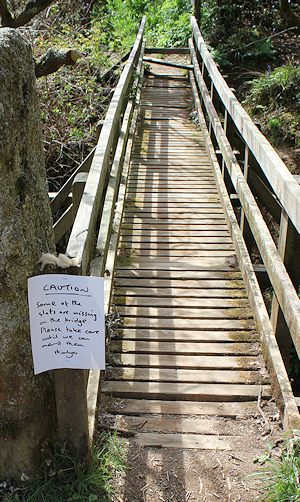 CAUTION
Some of the
slats are missing
on the bridge
Please take care
until we can
them
thankyou